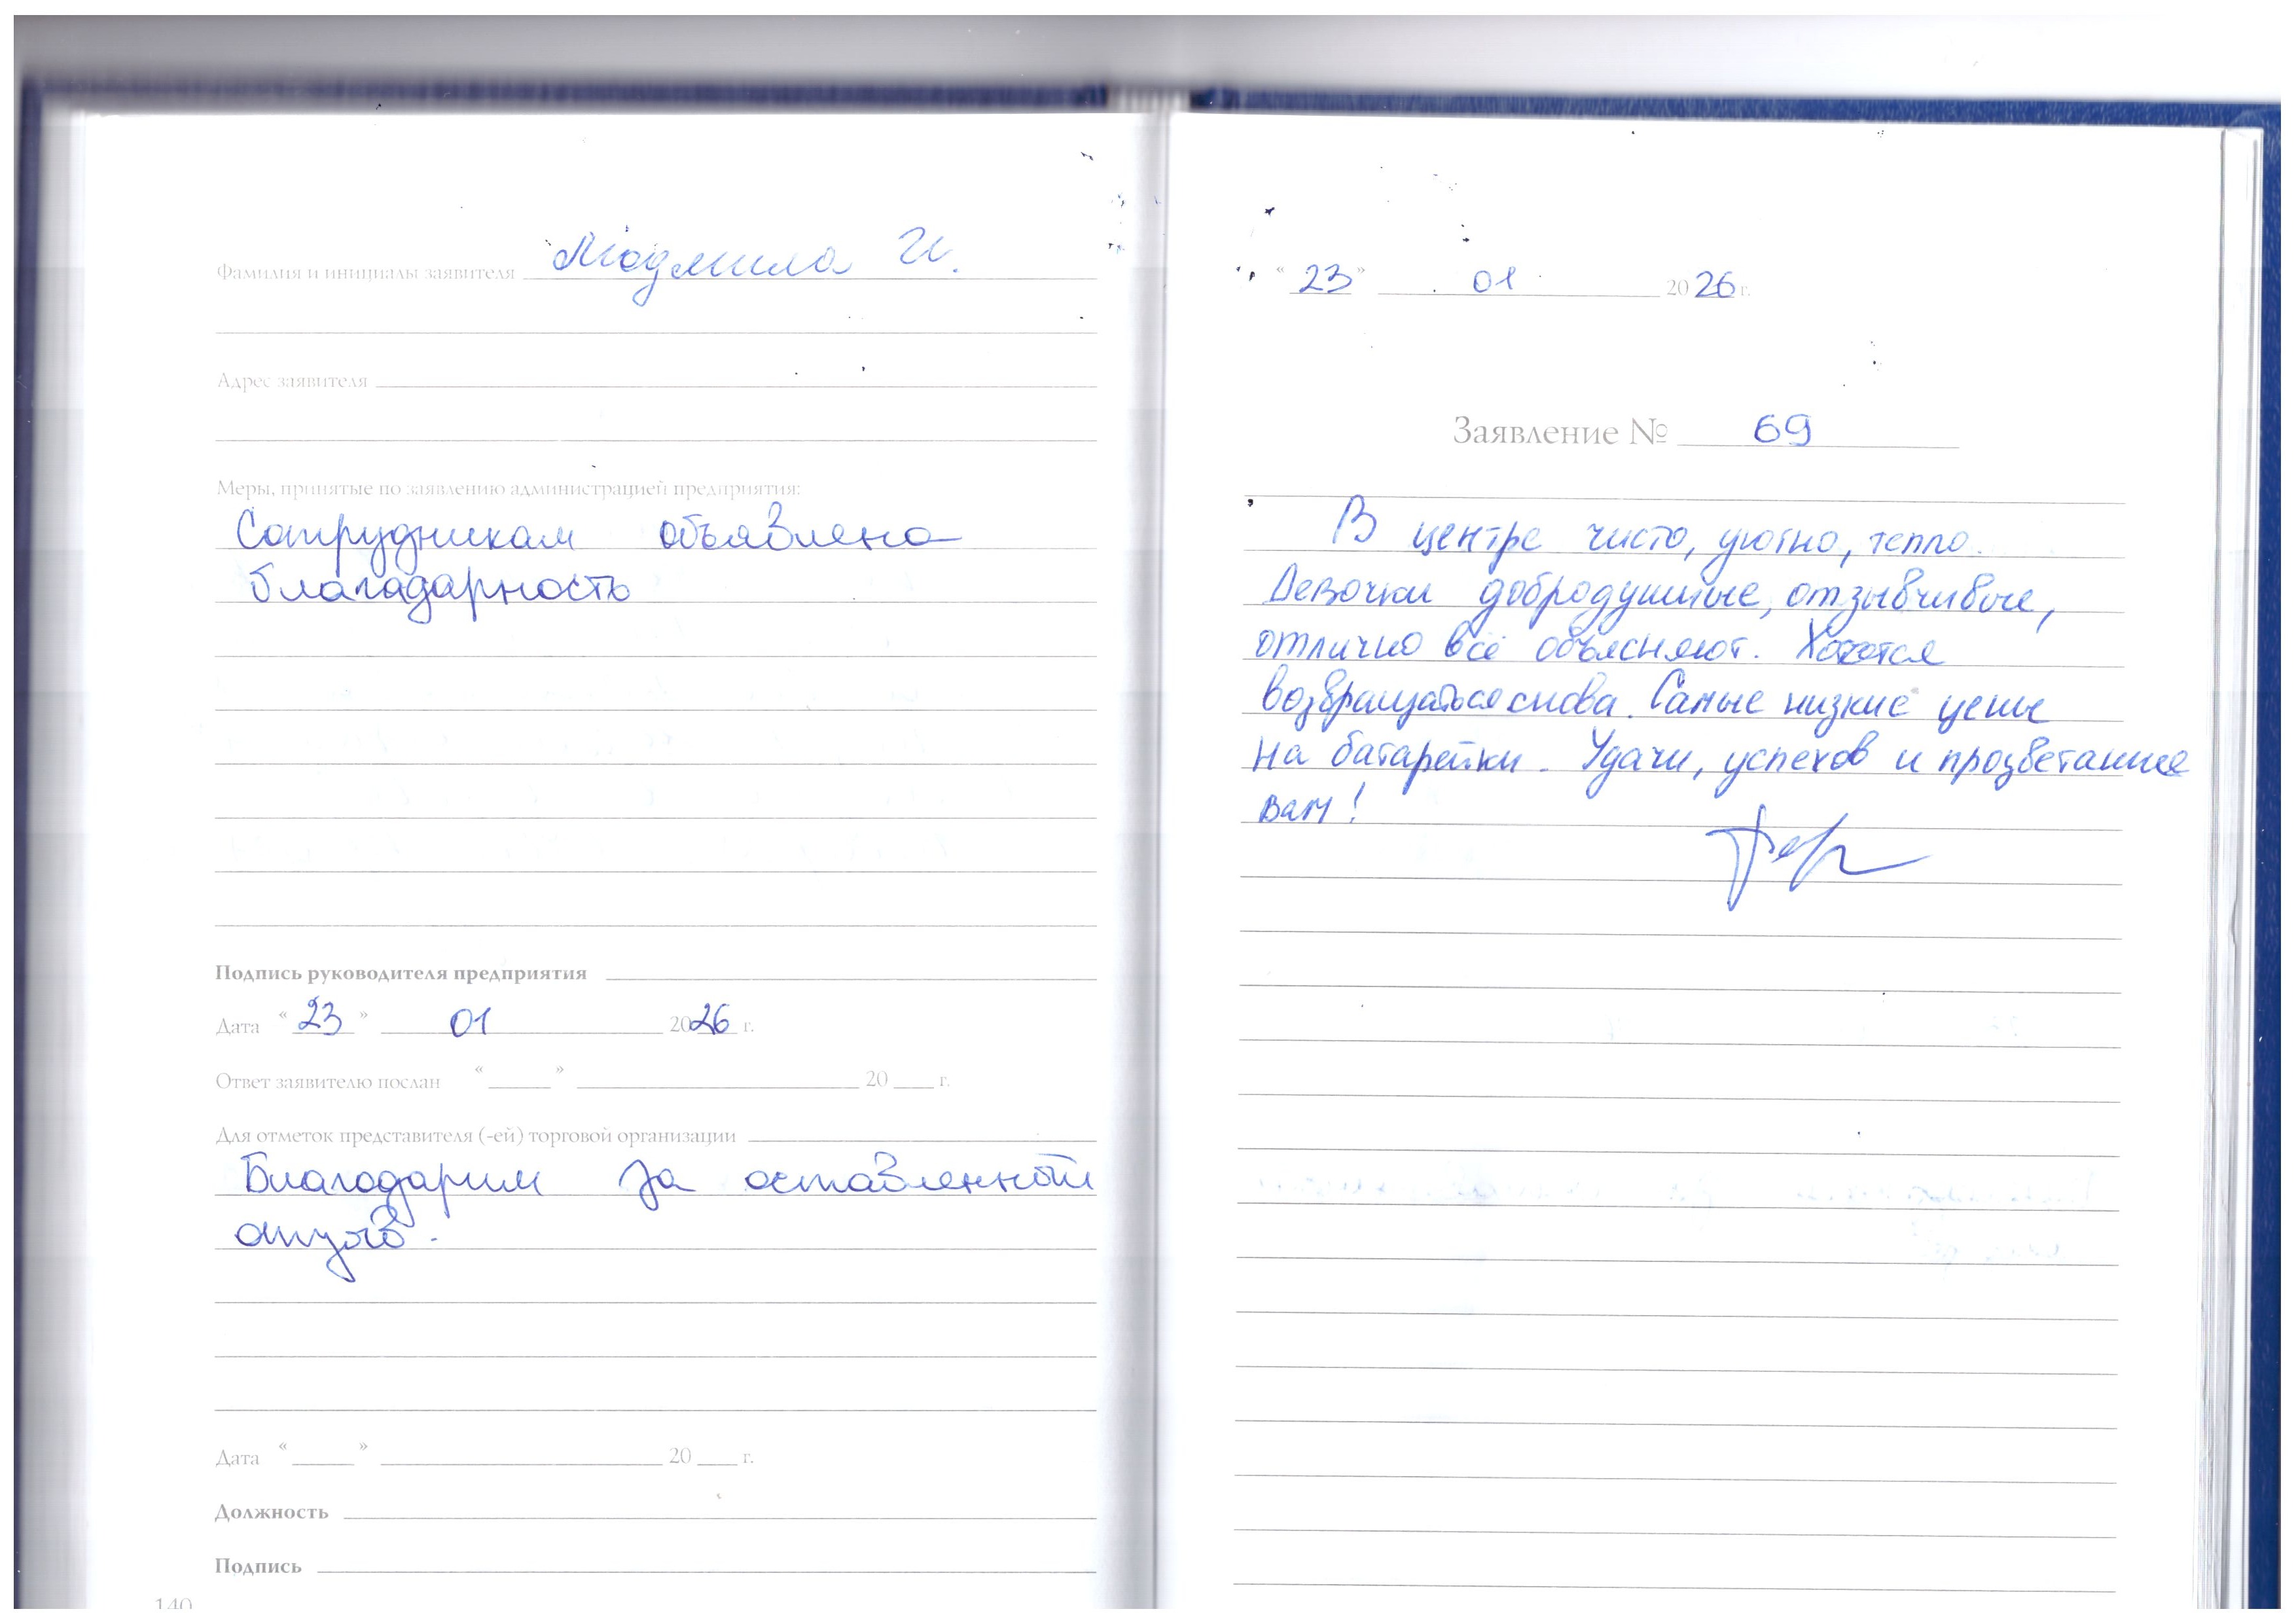 Фамилия и инициалы заявителя Людмила И.
Адрес заявителя
Меры, принятые по заявлению администрацией предприятия:
Сотрудникам объявлена
благадарность
Подпись руководителя предприятия
Дата “ 23 ” 01 2026 г.
Ответ заявителю послан “ ” 20 г.
Для отметок представителя (-ей) торговой организации
Благодарим за оставленный
отзыв.
Дата “ ” 20 г.
Должность
Подпись
140
“ 23 ” 01 2026 г.
Заявление № 69
В центре чисто, уютно, тепло.
Девочки добродушные, отзывчивые,
отлично всё объясняют. Хочется
возвращаться снова. Самые низкие цены
на батарейки. Удачи, успехов и процветание
вам!